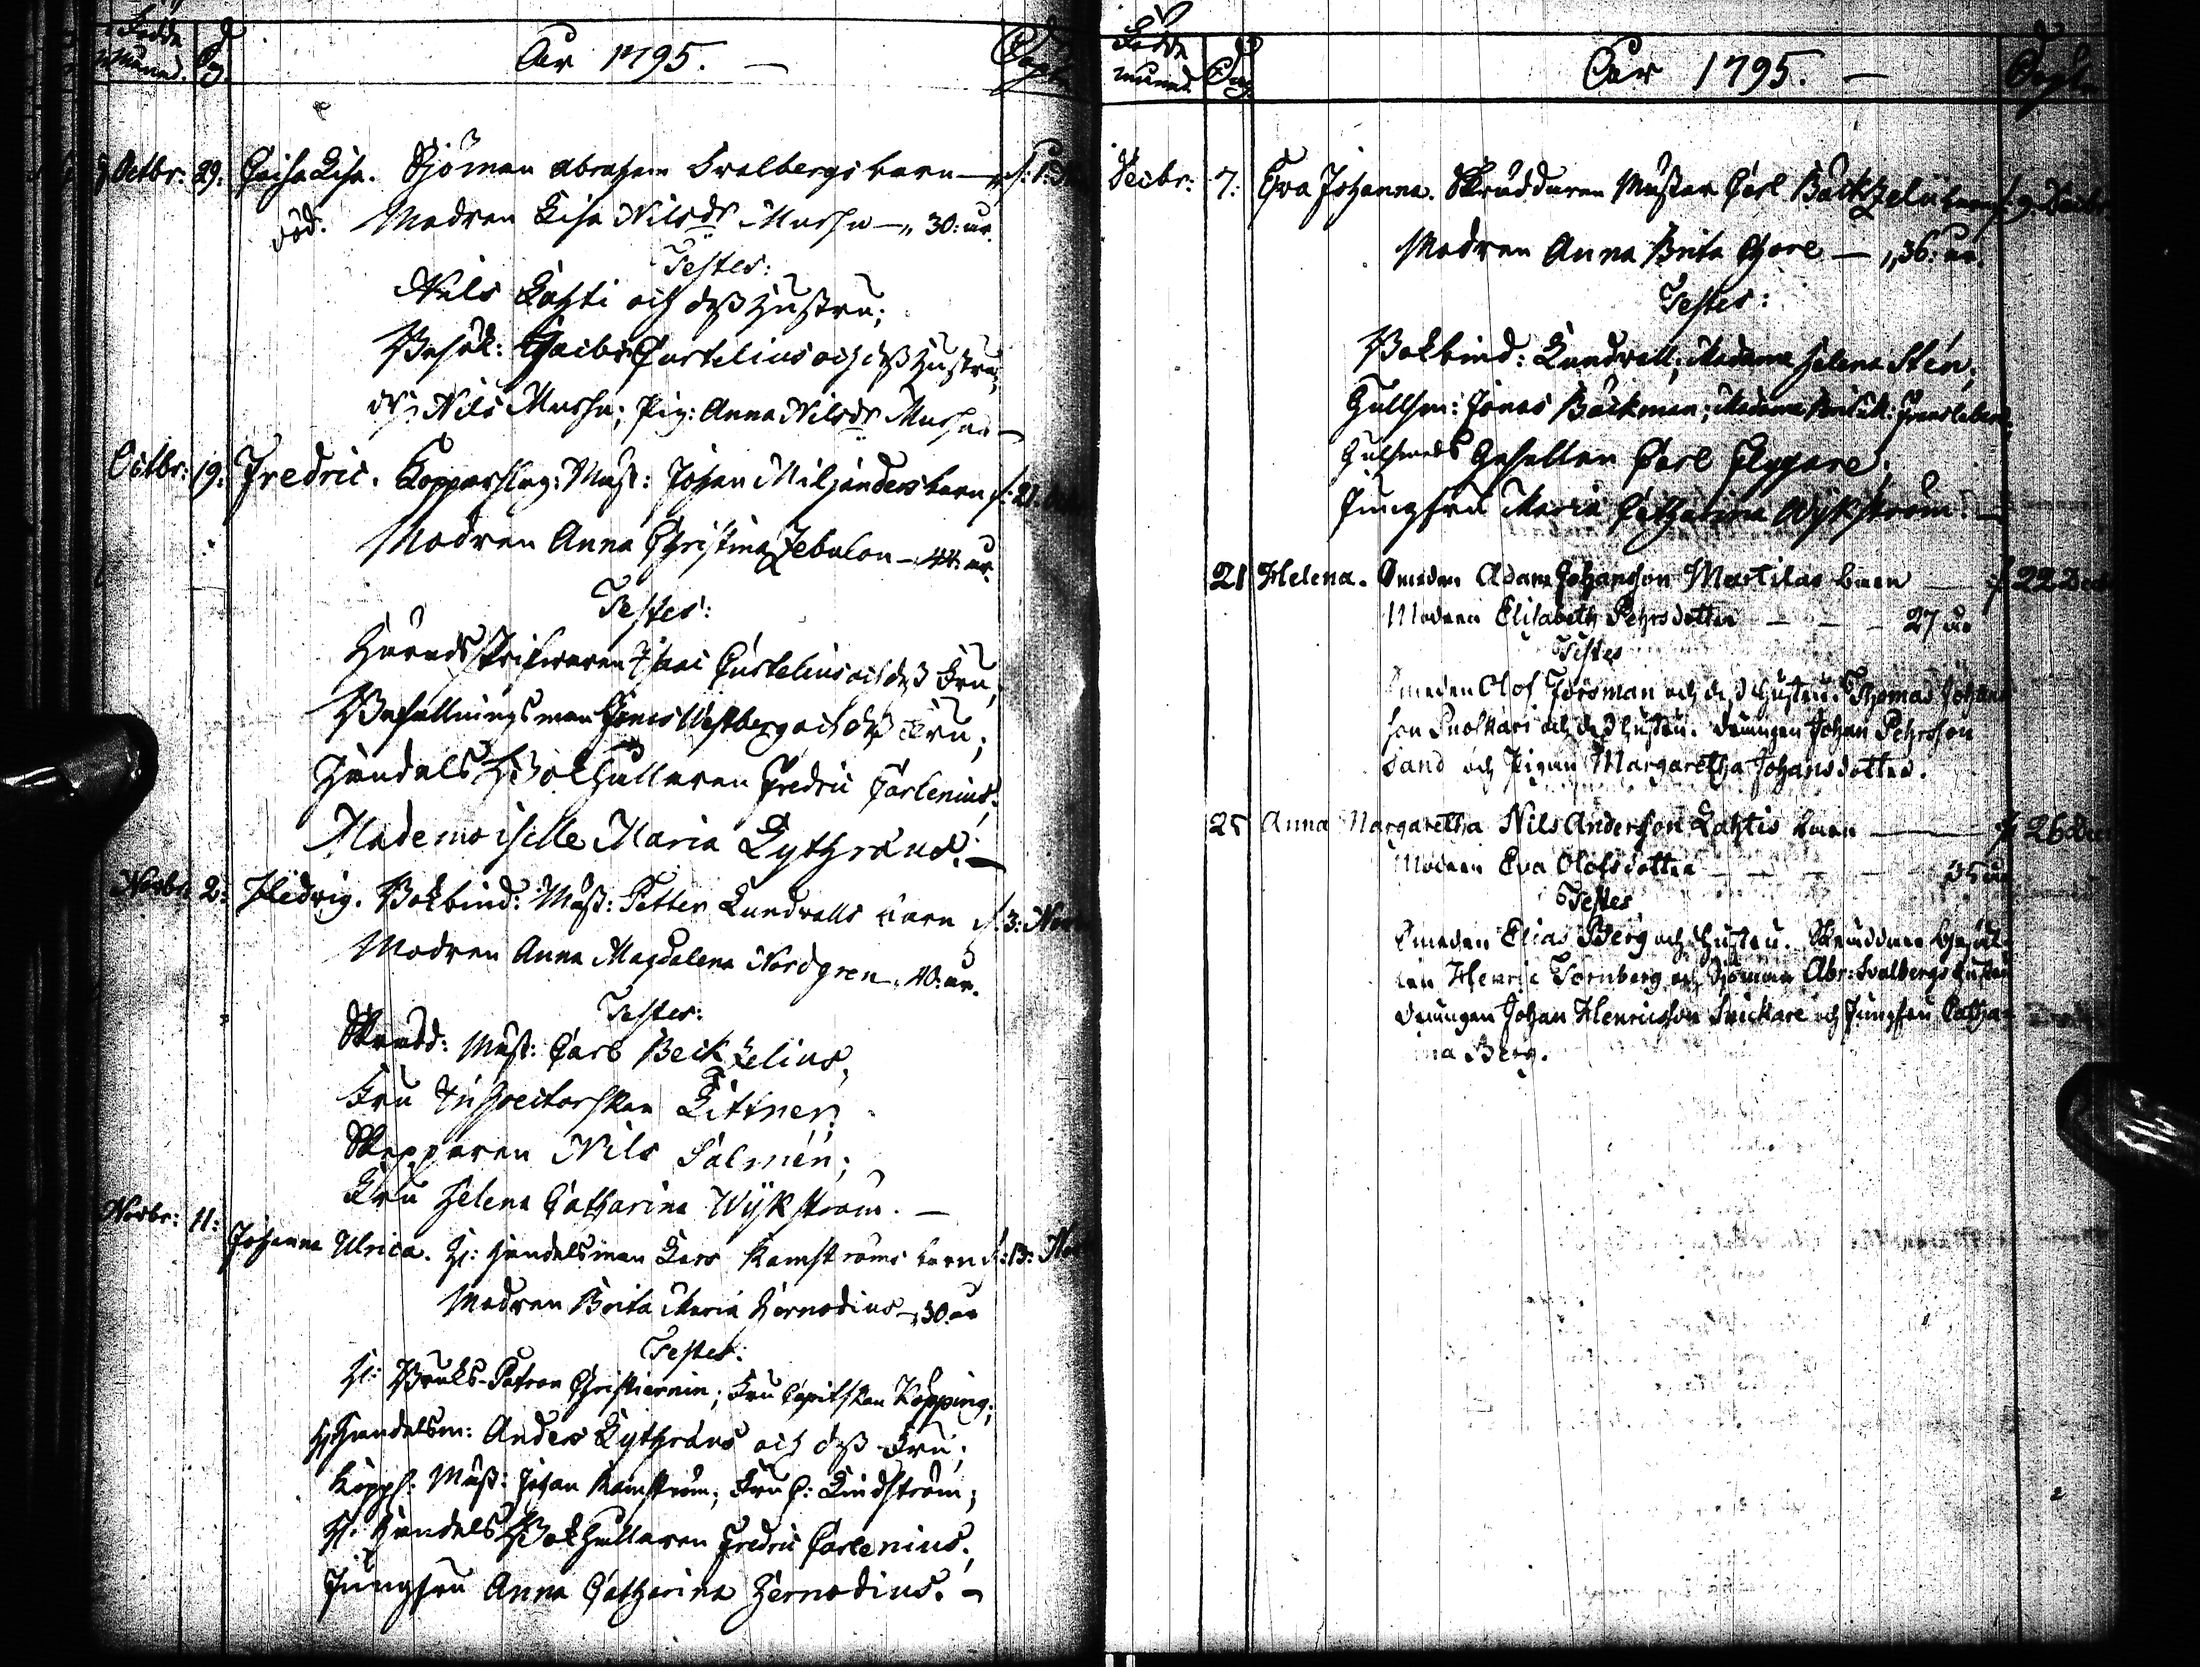 Födde månad. Dag. Åår 1795. Döpt.
Octbr: 29: Caisa Lisa. Sjöman Abraham Svalbergs barn
död. Modren Lisa Nilsdr Mussu 30: år.
Testes:
Nils Lahti och dess hustru;
Curtelius och dess hustru;
Nils Mussu; Pig: Anna Nilsdr Mussu
Octbr: 19: Fredric. Kopparslag: Mäst: Johan Miljanders barn d. 21.
Modren Anna Christina Zebulon 44: år.
Testes:
Härads Skrifvaren Curtelius och dess Fru,
Befallningsman Jonas Westberg och dess Fru;
Handels Bokhållaren Fredric Carlenius;
Mademoiselle Maria Lythræus.
Novbr: 2: Hedvig. Bokbind: Mäst: Petter Lundvalls barn d. 3: Nov
Modren Anna Magdalena Nordgren. 40: år.
Testes:
Skradd: Mäst: Carl Beckzelius,
Fru Inspectorskan Littner;
Skepparen Nils Salmén;
Fru Helena Catharina Wykström.
Novbr: 11: Johanna Ulrica. H: Handelsman Lars Kamströms barn d. 13: Nov
Modren Brita Maria Zernodius 30 år
Testes:
H: Bruks-Patron Christiernin; Fru Capitskan Köpping;
H Handelsm: Anders Lythræus och dess Fru;
Kopps: Mäst: Johan Kamström; Fru C: Lindström;
H. Handels Bokhållaren Fredric Carlenius;
Jungfru Anna Catharina Zernodius.
Födde månad. Dag. Åår 1795. Döpt.
Decbr: 7: Eva Johanna. Skräddaren Mästar Carl Bäckzelii barn d. 9. Decbr
Modren Anna Brita Thore 36: år.
Testes:
Bokbind: Lundvall; Madame Helena Stén;
Gullsm: Jonas Bäckman; Madame
Gulsmeds Gesellen Carl Flygare;
Jungfru Maria Catharina Wykström.
21 Helena. Smeden Adam Johansson Martilas barn d 22 Dec
Modren Elisabeth Pehrsdotter 27 år
Testes
Smeden Olof Forsman och dess hustru. Thomas Johans
son och dess hustru. Drängen Johan Pehrsson
Sand och Pigan Margaretha Johansdotter.
25 Anna Margaretha Nils Andersson Lahtis barn d 26 Dec
Modren Eva Olofsdotter 35 år
Testes
Smeden Elias Berg och hustru. Skräddare Gesäl
len Henric Tornberg och Sjöman Abr: Svalbergs hustru
Drängen Johan Henricsson Snickare och Jungfru Catha
rina Berg.